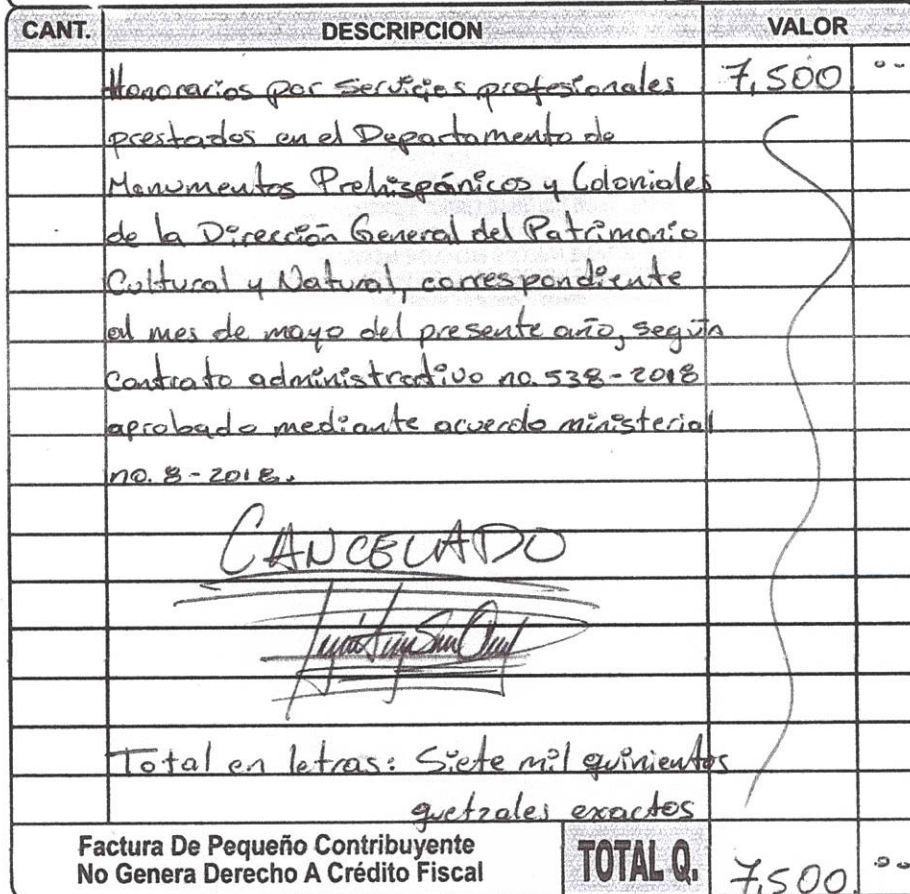 CANT. DESCRIPCION VALOR
Honorarios por servicios profesionales 7,500 00
prestados en el Departamento de
Monumentos Prehispánicos y Coloniales
de la Dirección General del Patrimonio
Cultural y Natural, correspondiente
al mes de mayo del presente año, según
contrato administrativo no. 538-2018
aprobado mediante acuerdo ministerial
no. 8-2018.
CANCELADO
Total en letras: Siete mil quinientos
quetzales exactos
Factura De Pequeño Contribuyente
No Genera Derecho A Crédito Fiscal
TOTAL Q. 7,500 00